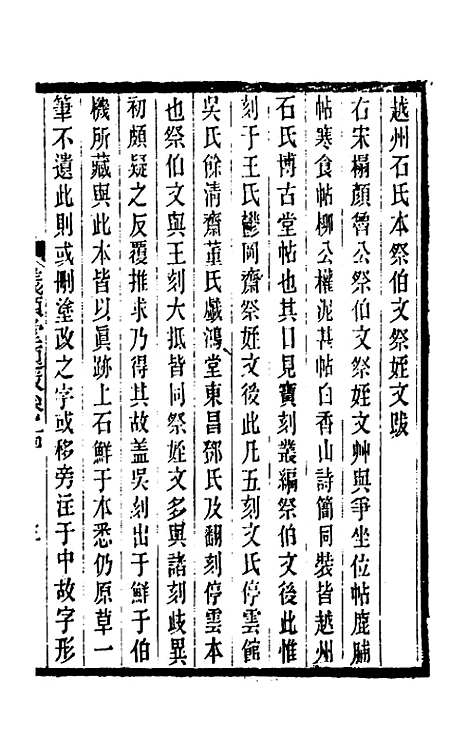 越州石氏本祭伯文祭姪文跋
右宋榻顏魯公祭伯文祭姪文艸與爭坐位帖鹿脯
帖寒食帖柳公權泥甚帖白香山詩簡同裝皆越州
石氏博古堂帖也其目見寶刻叢編祭伯文後此惟
刻于王氏鬱岡齋祭姪文後此凡五刻文氏停雲館
吳氏餘清齋董氏戲鴻堂東昌鄧氏及翻刻停雲本
也祭伯文與王刻大抵皆同祭姪文多與諸刻歧異
初頗疑之反覆推求乃得其故蓋吳刻出于鮮于伯
機所藏與此本皆以眞跡上石鮮于本悉仍原草一
筆不遺此則或刪塗改之字或移旁注于中故字形